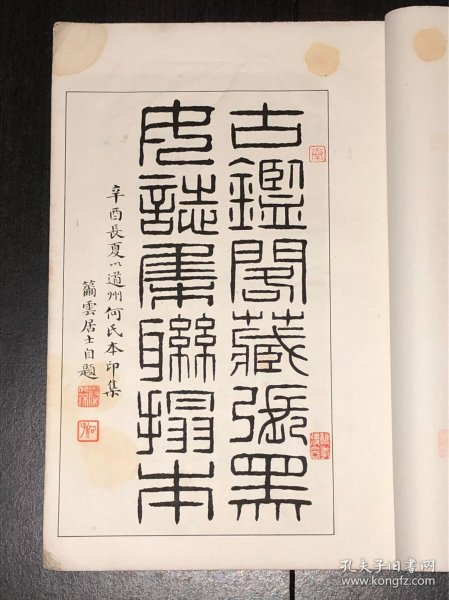 古鑑閣藏張黑
女誌集聯搨本
辛酉長夏以道州何氏本印集
籋雲居士自題
孔夫子旧书网
www.kongfz.com